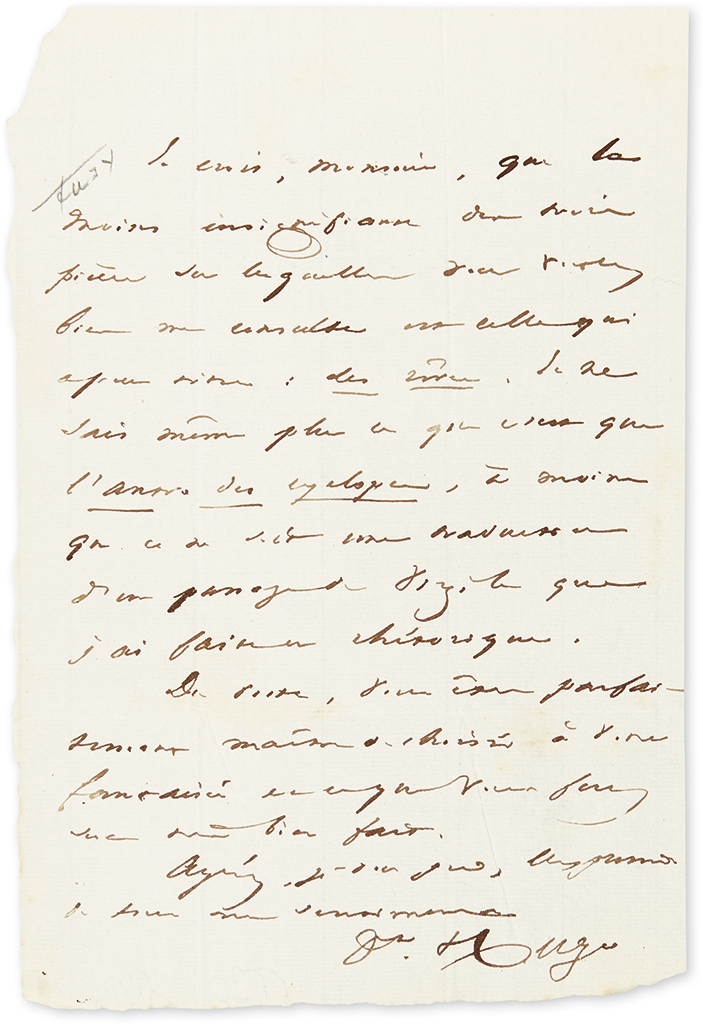 Je crois, monsieur, que la
moins insignifiante des trois
pièces sur lesquelles vous voulez
bien me consulter est celle qui
a pour titre : des vers. Je ne
sais même plus ce que c'est que
l'antre des cyclopes, à moins
que ce ne soit une traduction
d'un passage de Virgile que
j'ai faite en rhétorique.
Du reste, vous êtes parfai-
tement maître de choisir à votre
fantaisie et ce que vous ferez
sera très bien fait.
Agréez, je vous prie, l'expression
de tous mes sentiments
Vor. Hugo